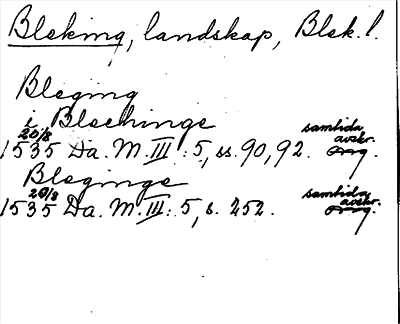 Bleking, landskap, Blek. l.
Bleging
i Blechinge
20/8 samtida avskr.
1535 Da. M. III : 5, ss. 90, 92. orig.
Bleginge
20/8 samtida avskr.
1535 Da. M. III : 5, s. 252. orig.